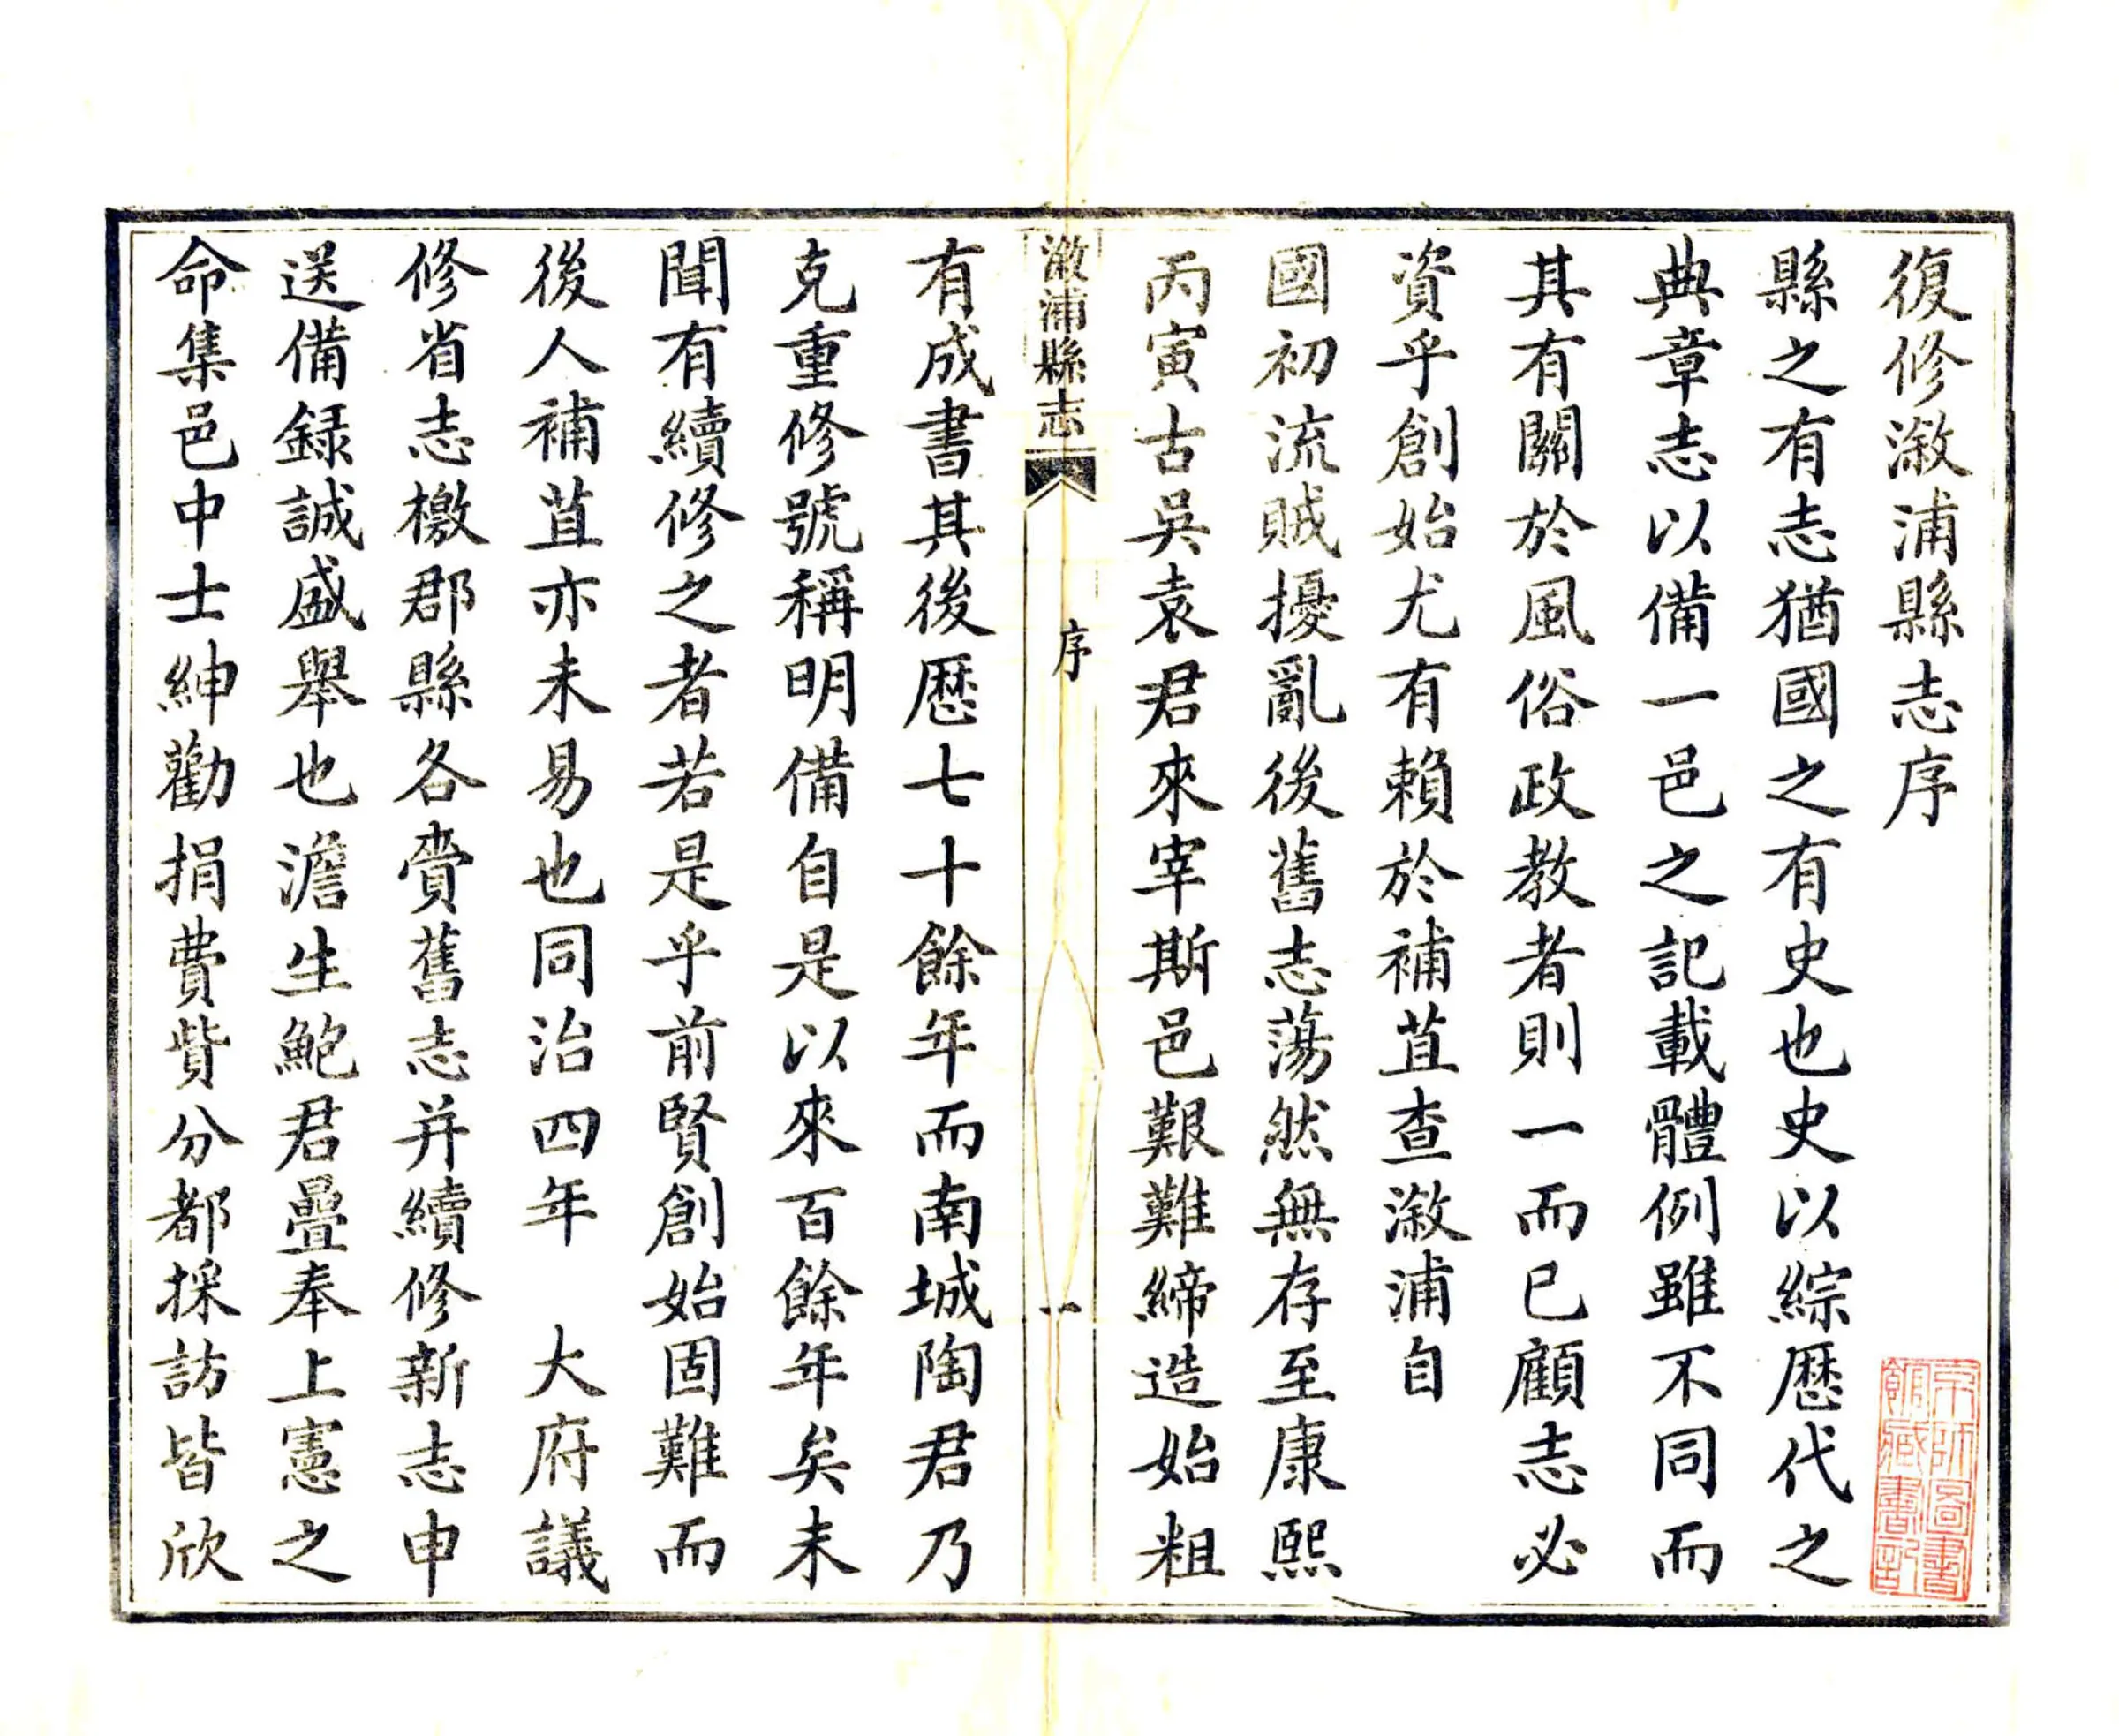 復修漵浦縣志序
縣之有志猶國之有史也史以綜歷代之
典章志以備一邑之記載體例雖不同而
其有關於風俗政教者則一而已顧志必
資乎創始尤有賴於補苴查漵浦自
國初流賊擾亂後舊志蕩然無存至康熙
丙寅古吳袁君來宰斯邑艱難締造始粗
漵浦縣志
序
一
有成書其後歷七十餘年而南城陶君乃
克重修號稱明備自是以來百餘年矣未
聞有續修之者若是乎前賢創始固難而
後人補苴亦未易也同治四年　大府議
修省志檄郡縣各賫舊志并續修新志申
送備録誠盛舉也澹生鮑君疊奉上憲之
命集邑中士紳勸捐費貲分都採訪皆欣
京師圖書
館藏書記